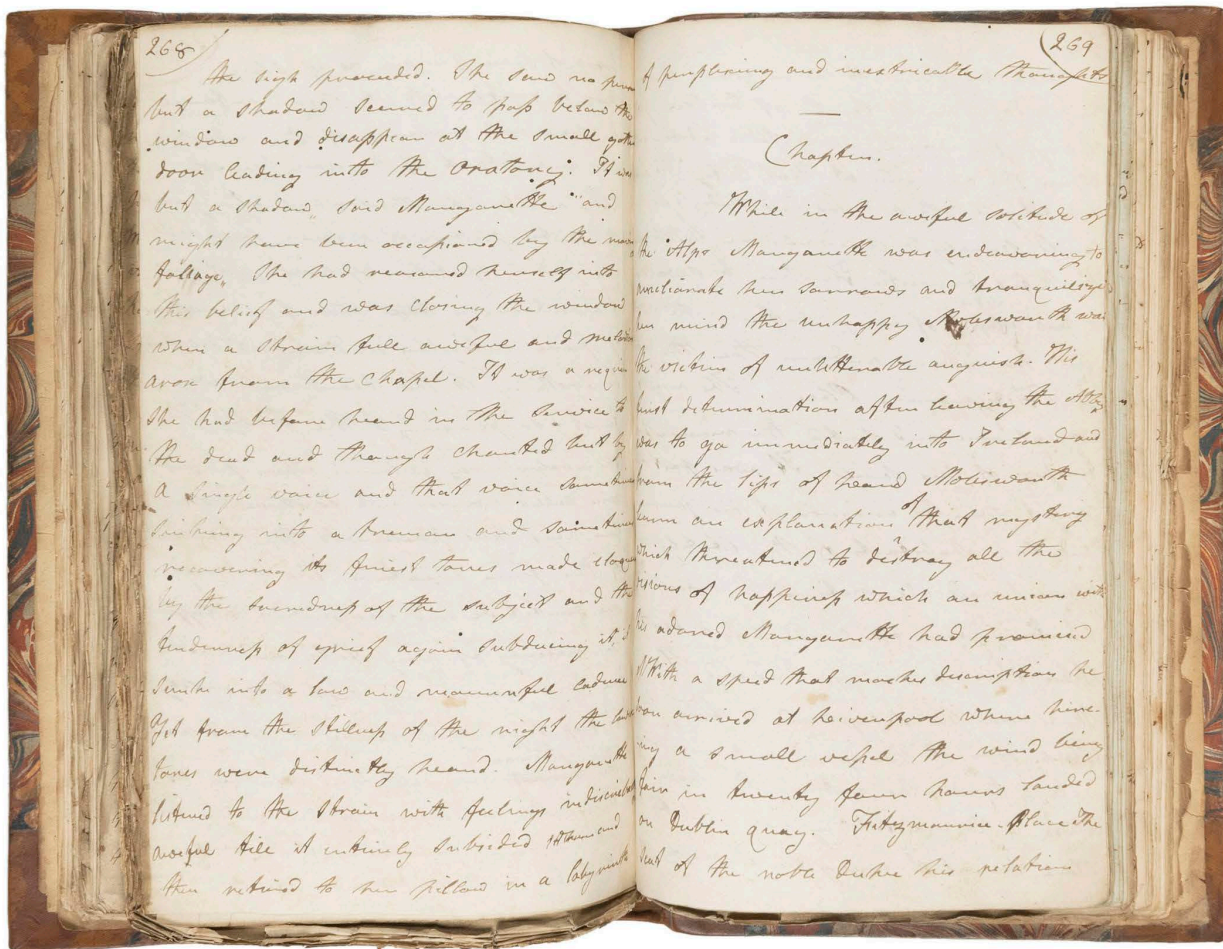 268
the sigh proceeded. She saw no person
but a shadow seemed to pass below the
window and disappear at the small gothic
door leading into the Oratory. It was
but a shadow„ said Margarette "and
might have been occasioned by the
foliage„ She had reasoned herself into
this belief and was closing the window
when a strain full aweful and melodious
arose from the Chapel. It was a requiem
she had before heard in the Service to
the dead and though chanted but by
a single voice and that voice sometimes
sinking into a tremor and sometimes
recovering its finest tones made eloquent
by the sacredness of the subject and the
tenderness of grief again subduing it, it
sunk into a low and mournful cadence
Yet from the stillness of the night the
tones were distinctly heard. Margarette
listened to the strain with feelings indescribably
aweful till it entirely subsided and
then retired to her pillow in a labyrinth
269
of perplexing and inextricable thoughts
Chapter.
While in the aweful solitude of
the Alps Margarette was endeavouring to
meliorate her sorrows and tranquilize
her mind the unhappy Molesworth was
the victim of unutterable anguish. His
first determination after leaving the
was to go immediately into Ireland and
from the lips of Molesworth
learn an explanation of that mystery
which threatened to destroy all the
visions of happiness which an union with
his adored Margarette had promised
With a speed that mocks description he
soon arrived at Leiverpool where hire-
ing a small vessel the wind being
fair in twenty four hours landed
on Dublin quay. Fitzmaurice Place The
seat of the noble Duke his relation